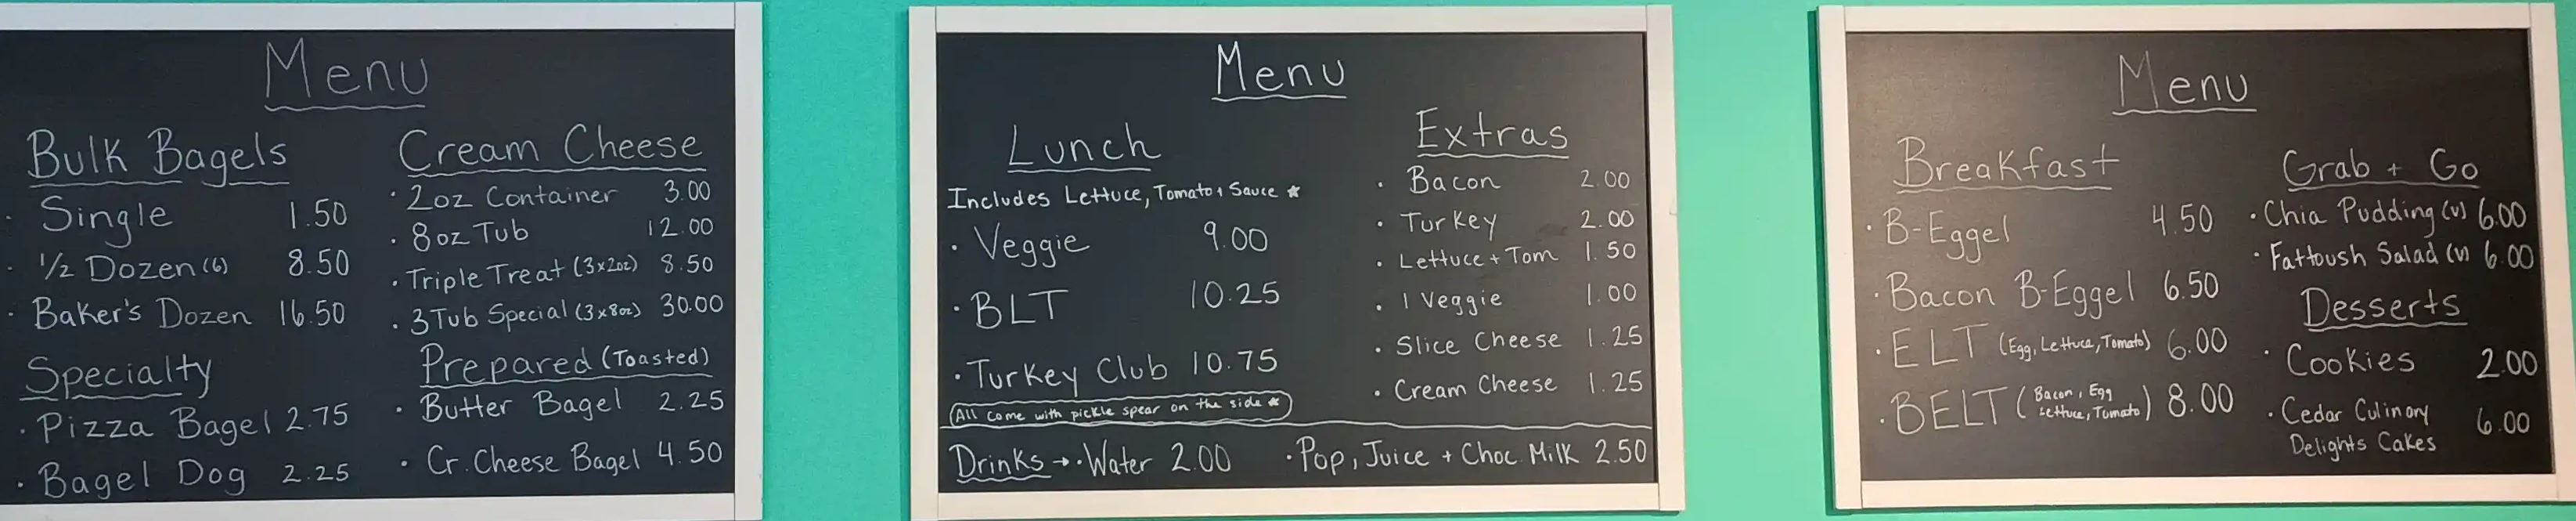 Menu
Bulk Bagels
· Single 1.50
· 1/2 Dozen (6) 8.50
· Baker's Dozen 16.50
Specialty
· Pizza Bagel 2.75
· Bagel Dog 2.25
Cream Cheese
· 2oz Container 3.00
· 8oz Tub 12.00
· Triple Treat (3x2oz) 8.50
· 3 Tub Special (3x8oz) 30.00
Prepared (Toasted)
· Butter Bagel 2.25
· Cr. Cheese Bagel 4.50
Menu
Lunch
Includes Lettuce, Tomato + Sauce *
· Veggie 9.00
· BLT 10.25
· Turkey Club 10.75
(All come with pickle spear on the side *)
Extras
· Bacon 2.00
· Turkey 2.00
· Lettuce + Tom 1.50
· 1 Veggie 1.00
· Slice Cheese 1.25
· Cream Cheese 1.25
Drinks → · Water 2.00 · Pop, Juice + Choc. Milk 2.50
Menu
Breakfast
· B-Eggel 4.50
· Bacon B-Eggel 6.50
· ELT (Egg, Lettuce, Tomato) 6.00
· BELT (Bacon, Egg Lettuce, Tomato) 8.00
Grab + Go
· Chia Pudding (v) 6.00
· Fattoush Salad (v) 6.00
Desserts
· Cookies 2.00
· Cedar Culinary 6.00
Delights Cakes